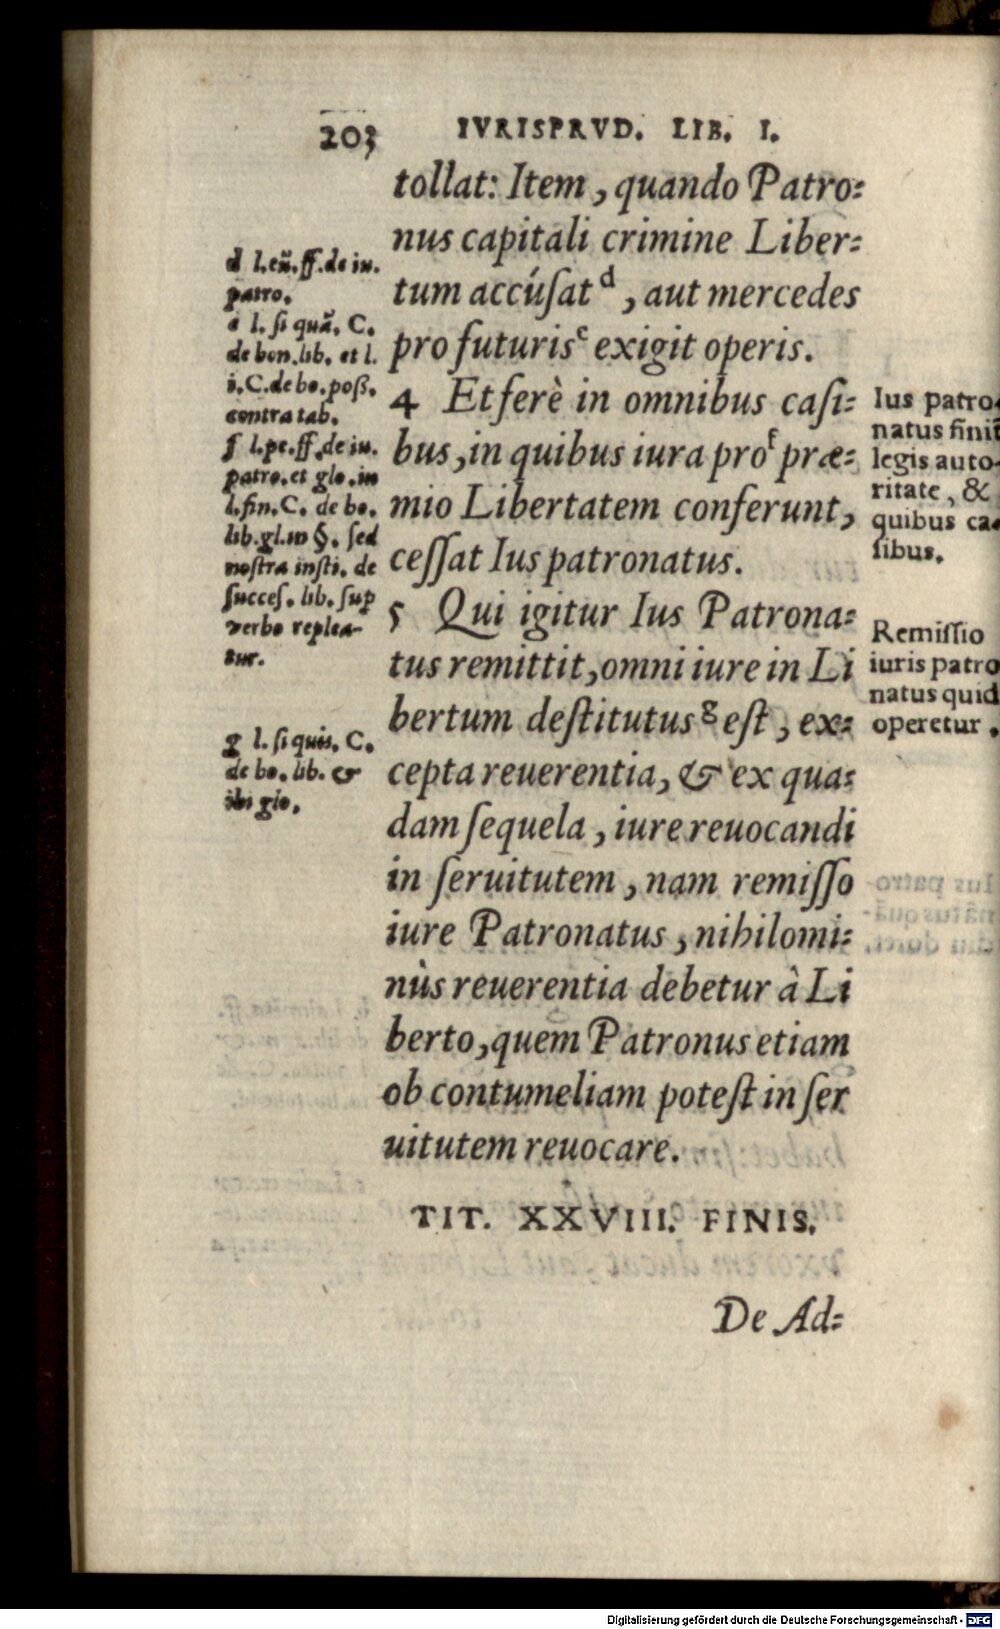 203 IVRISPRVD. LIB. I.
tollat: Item, quando Patro=
nus capitali crimine Liber=
tum accúſat d, aut mercedes
pro futuris e exigit operis.
4 Et ferè in omnibus caſi=
bus, in quibus iura pro f præ=
mio Libertatem conferunt,
ceſſat Ius patronatus.
5 Qui igitur Ius Patrona=
tus remittit, omni iure in Li
bertum deſtitutus g eſt, ex=
cepta reuerentia, & ex qua=
dam ſequela, iure reuocandi
in ſeruitutem, nam remiſſo
iure Patronatus, nihilomi=
nùs reuerentia debetur à Li
berto, quem Patronus etiam
ob contumeliam poteſt in ſer
uitutem reuocare.
TIT. XXVIII. FINIS.
De Ad=
d l. eñ. ff. de iu.
patro.
e l. ſi quã. C.
de bon. lib. et l.
i. C. de bo. poß.
contra tab.
f l. pe. ff. de iu.
patro. et glo. in
l. fin. C. de bo.
lib. gl. in §. ſed
noſtra inſti. de
ſucceſ. lib. ſup
verbo replea-
tur.
g l. ſi quis. C.
de bo. lib. &
ibi glo.
Ius patro-
natus finit
legis auto-
ritate, &
quibus ca-
ſibus.
Remiſſio
iuris patro
natus quid
operetur.
Digitalisierung gefördert durch die Deutsche Forschungsgemeinschaft - DFG